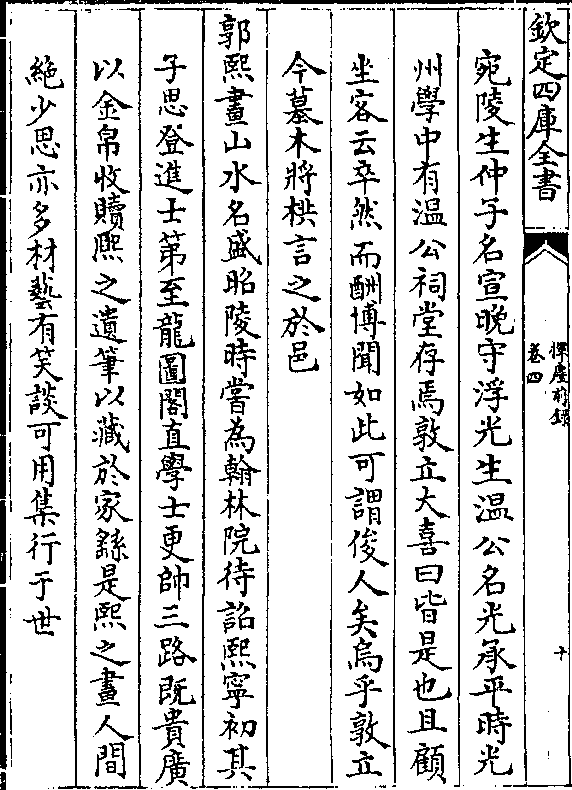 欽定四庫全書
揮麈前録
卷四
十
宛陵生仲子名宣晚守浮光生温公名光承平時光
州學中有温公祠堂存焉敦立大喜曰皆是也且顧
坐客云卒然而酬博聞如此可謂俊人矣烏乎敦立
今墓木將栱言之於邑
郭熙畫山水名盛昭陵時嘗為翰林院待詔熙寧初其
子思登進士第至龍圖閣直學士更帥三路既貴廣
以金帛收贖熙之遺筆以藏於家繇是熙之畫人間
絶少思亦多材藝有笑談可用集行于世